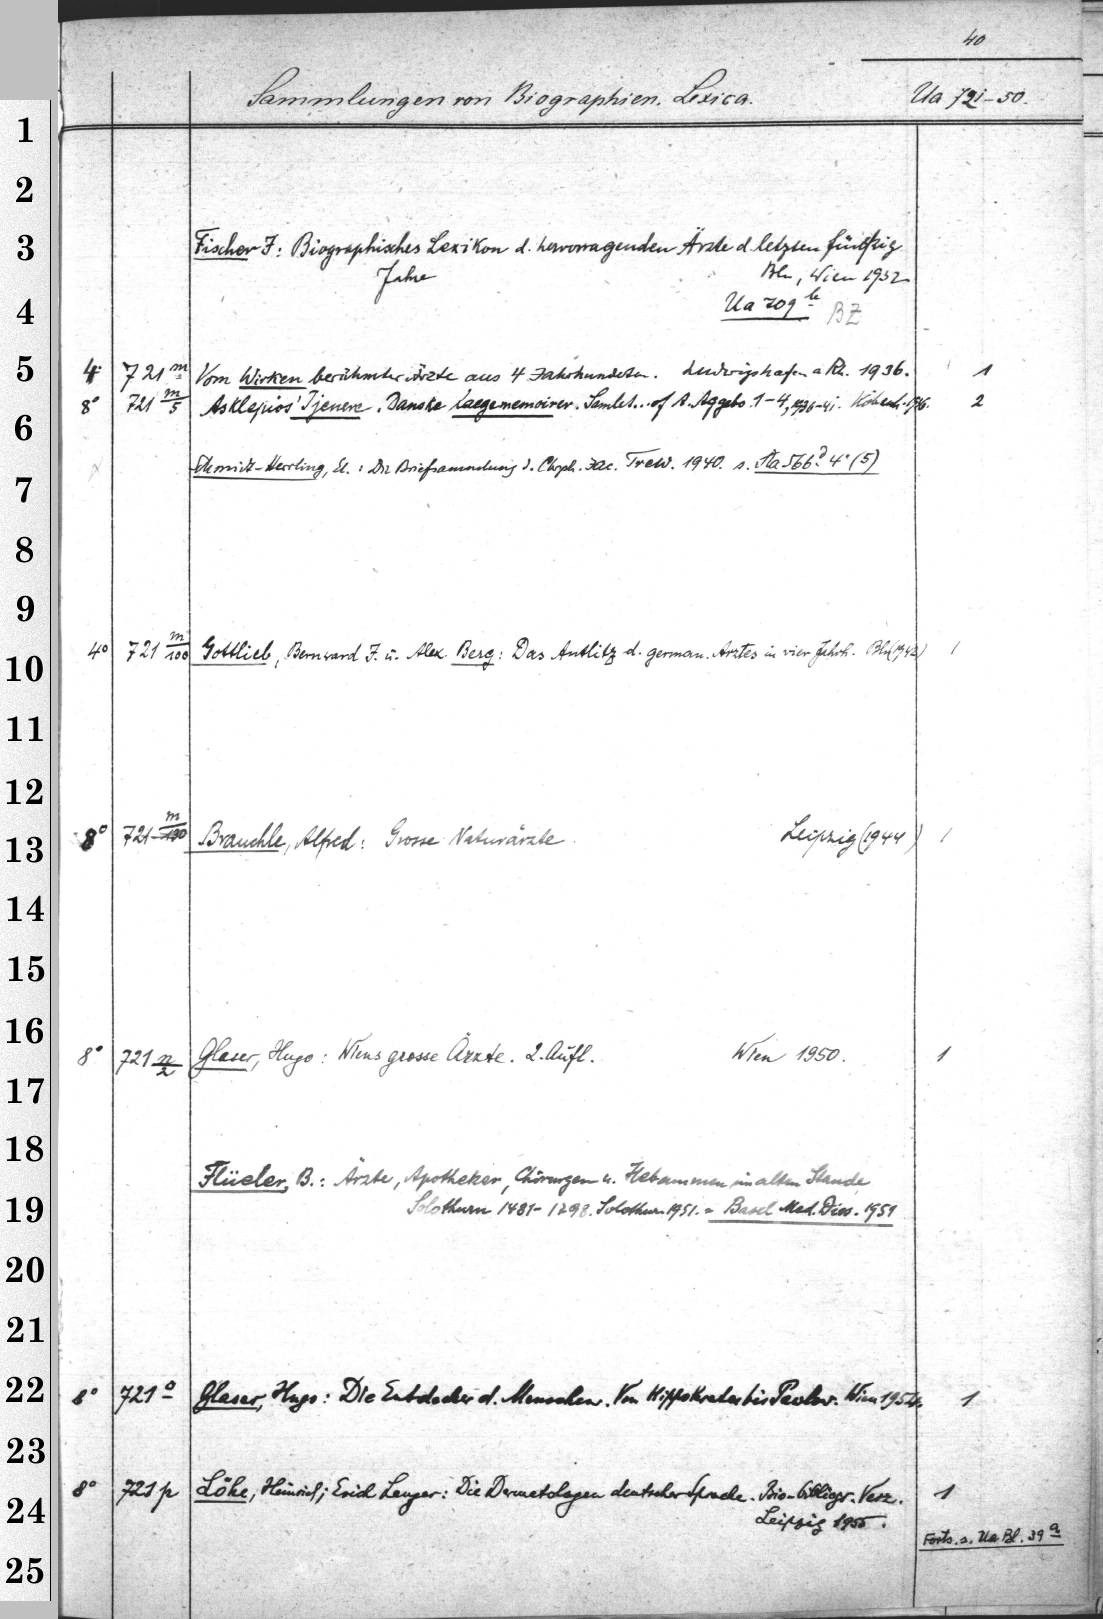 40
Sammlungen von Biographien. Lexica. Ua 721-50.
1
2
3 Fischer J: Biographisches Lexikon d. hervorragenden Ärzte d. letzten fünfzig
Jahre Bln, Wien 1932
4 Ua 709 b BZ
5 4° 721 m Vom Wirken berühmter Ärzte aus 4 Jahrhunderten. Ludwigshafen a Rh. 1936. 1
8° 721 m/5 Asklepios' Tjenere. Danske Laegememoirer. Samlet... of A. Aggebo. 1-4, 1936-41. Köbenh. 2
6
Schmidt-Herrling, El.: Die Briefsammlung d. Chrph. Jac. Trew. 1940. s. 566 4° (5)
7
8
9
10 4° 721 m/100 Gottlieb, Bernward J. u. Alex. Berg: Das Antlitz d. german. Arztes in vier Jahrh. Bln (1942) 1
11
12
13 8° 721 m/190 Brauchle, Alfred: Grosse Naturärzte. Leipzig (1944) 1
14
15
16
8° 721 n/2 Glaser, Hugo: Wiens grosse Ärzte. 2. Aufl. Wien 1950. 1
17
18
Flüeler, B.: Ärzte, Apotheker, Chirurgen u. Hebammen im alten Stande
19 Solothurn 1481-1798. Solothurn 1951. = Basel Med. Diss. 1951
20
21
22 8° 721 o Glaser, Hugo: Die Entdecker d. Menschen. Von Hippokrates bis Pawlow. Wien 1954. 1
23
24 8° 721 p Löhe, Heinrich; Erich Langer: Die Dermatologen deutscher Sprache. Bio-bibliogr. Verz. 1
Leipzig 1955.
Forts. s. Ua Bl. 39 a
25